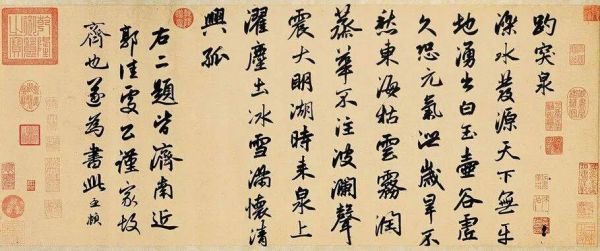 趵突泉
濼水發源天下無平
地湧出白玉壺谷虛
久恐元氣泄歲旱不
愁東海枯雲霧潤
蒸華不注波瀾聲
震大明湖時來泉上
濯塵土冰雪滿懷清
興孤
右二題皆濟南近
郭佳處公謹家故
齊也遂為書此孟頫